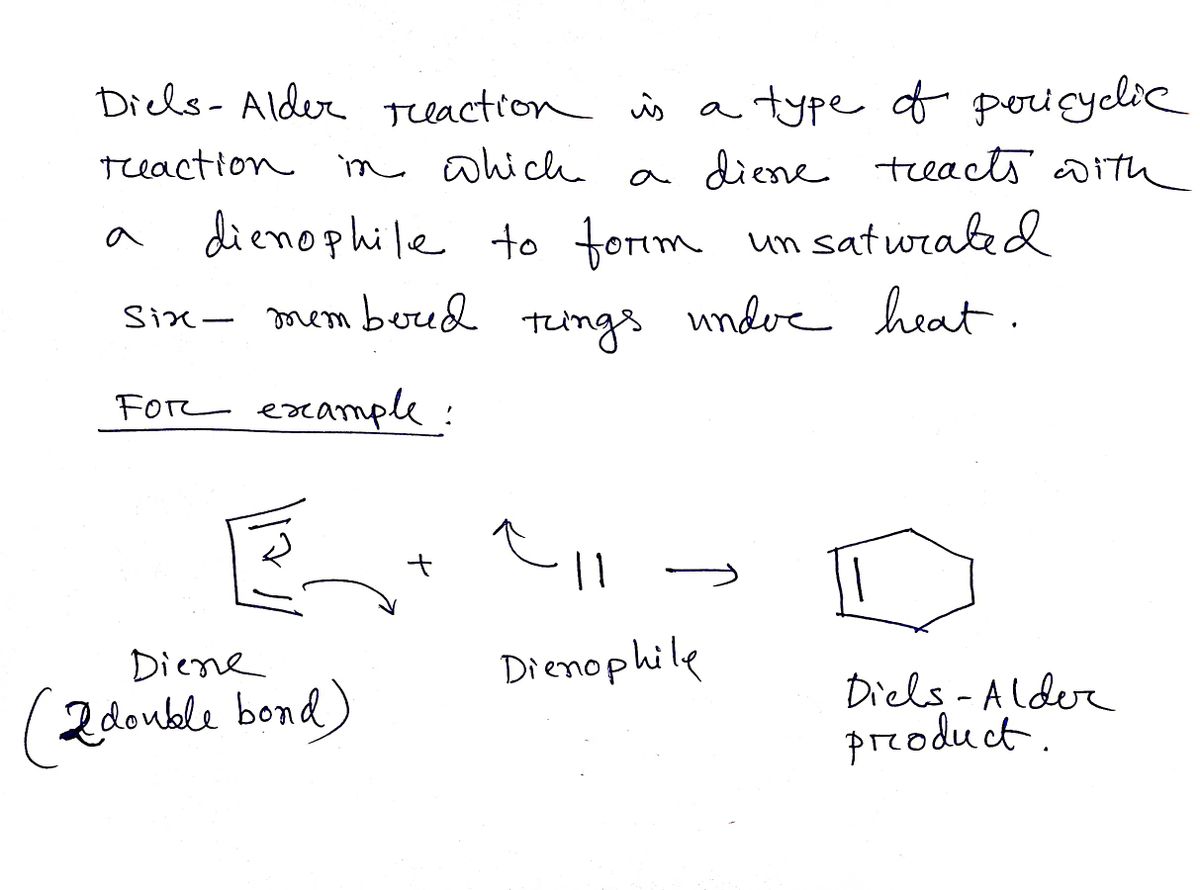 Diels-Alder reaction is a type of pericyclic
reaction in which a diene reacts with
a dienophile to form unsaturated
six-membered rings under heat.
For example:
+
Diene
(2 double bond)
Dienophile
Diels-Alder
product.